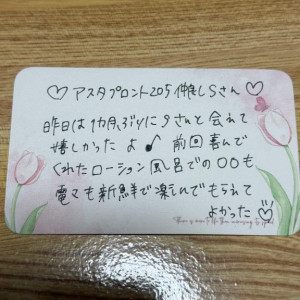 ♡アスタプロント205 惟しSさん♡
昨日は1カ月ぶりにSさんと会れて
嬉しかったよ♪ 前回喜んで
くれたローション風呂での〇〇も
電マも新鮮で楽しんでもらえて
よかった♡